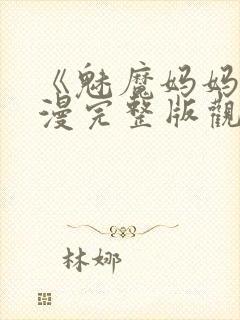 《魅魔妈妈
漫完整版觀
林娜